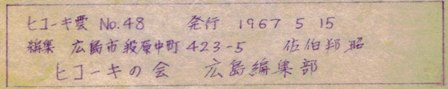 ヒコーキ雲 No.48 発行 1967 5 15
編集 広島市段原中町 423-5 佐伯邦昭
ヒコーキの会 広島編集部